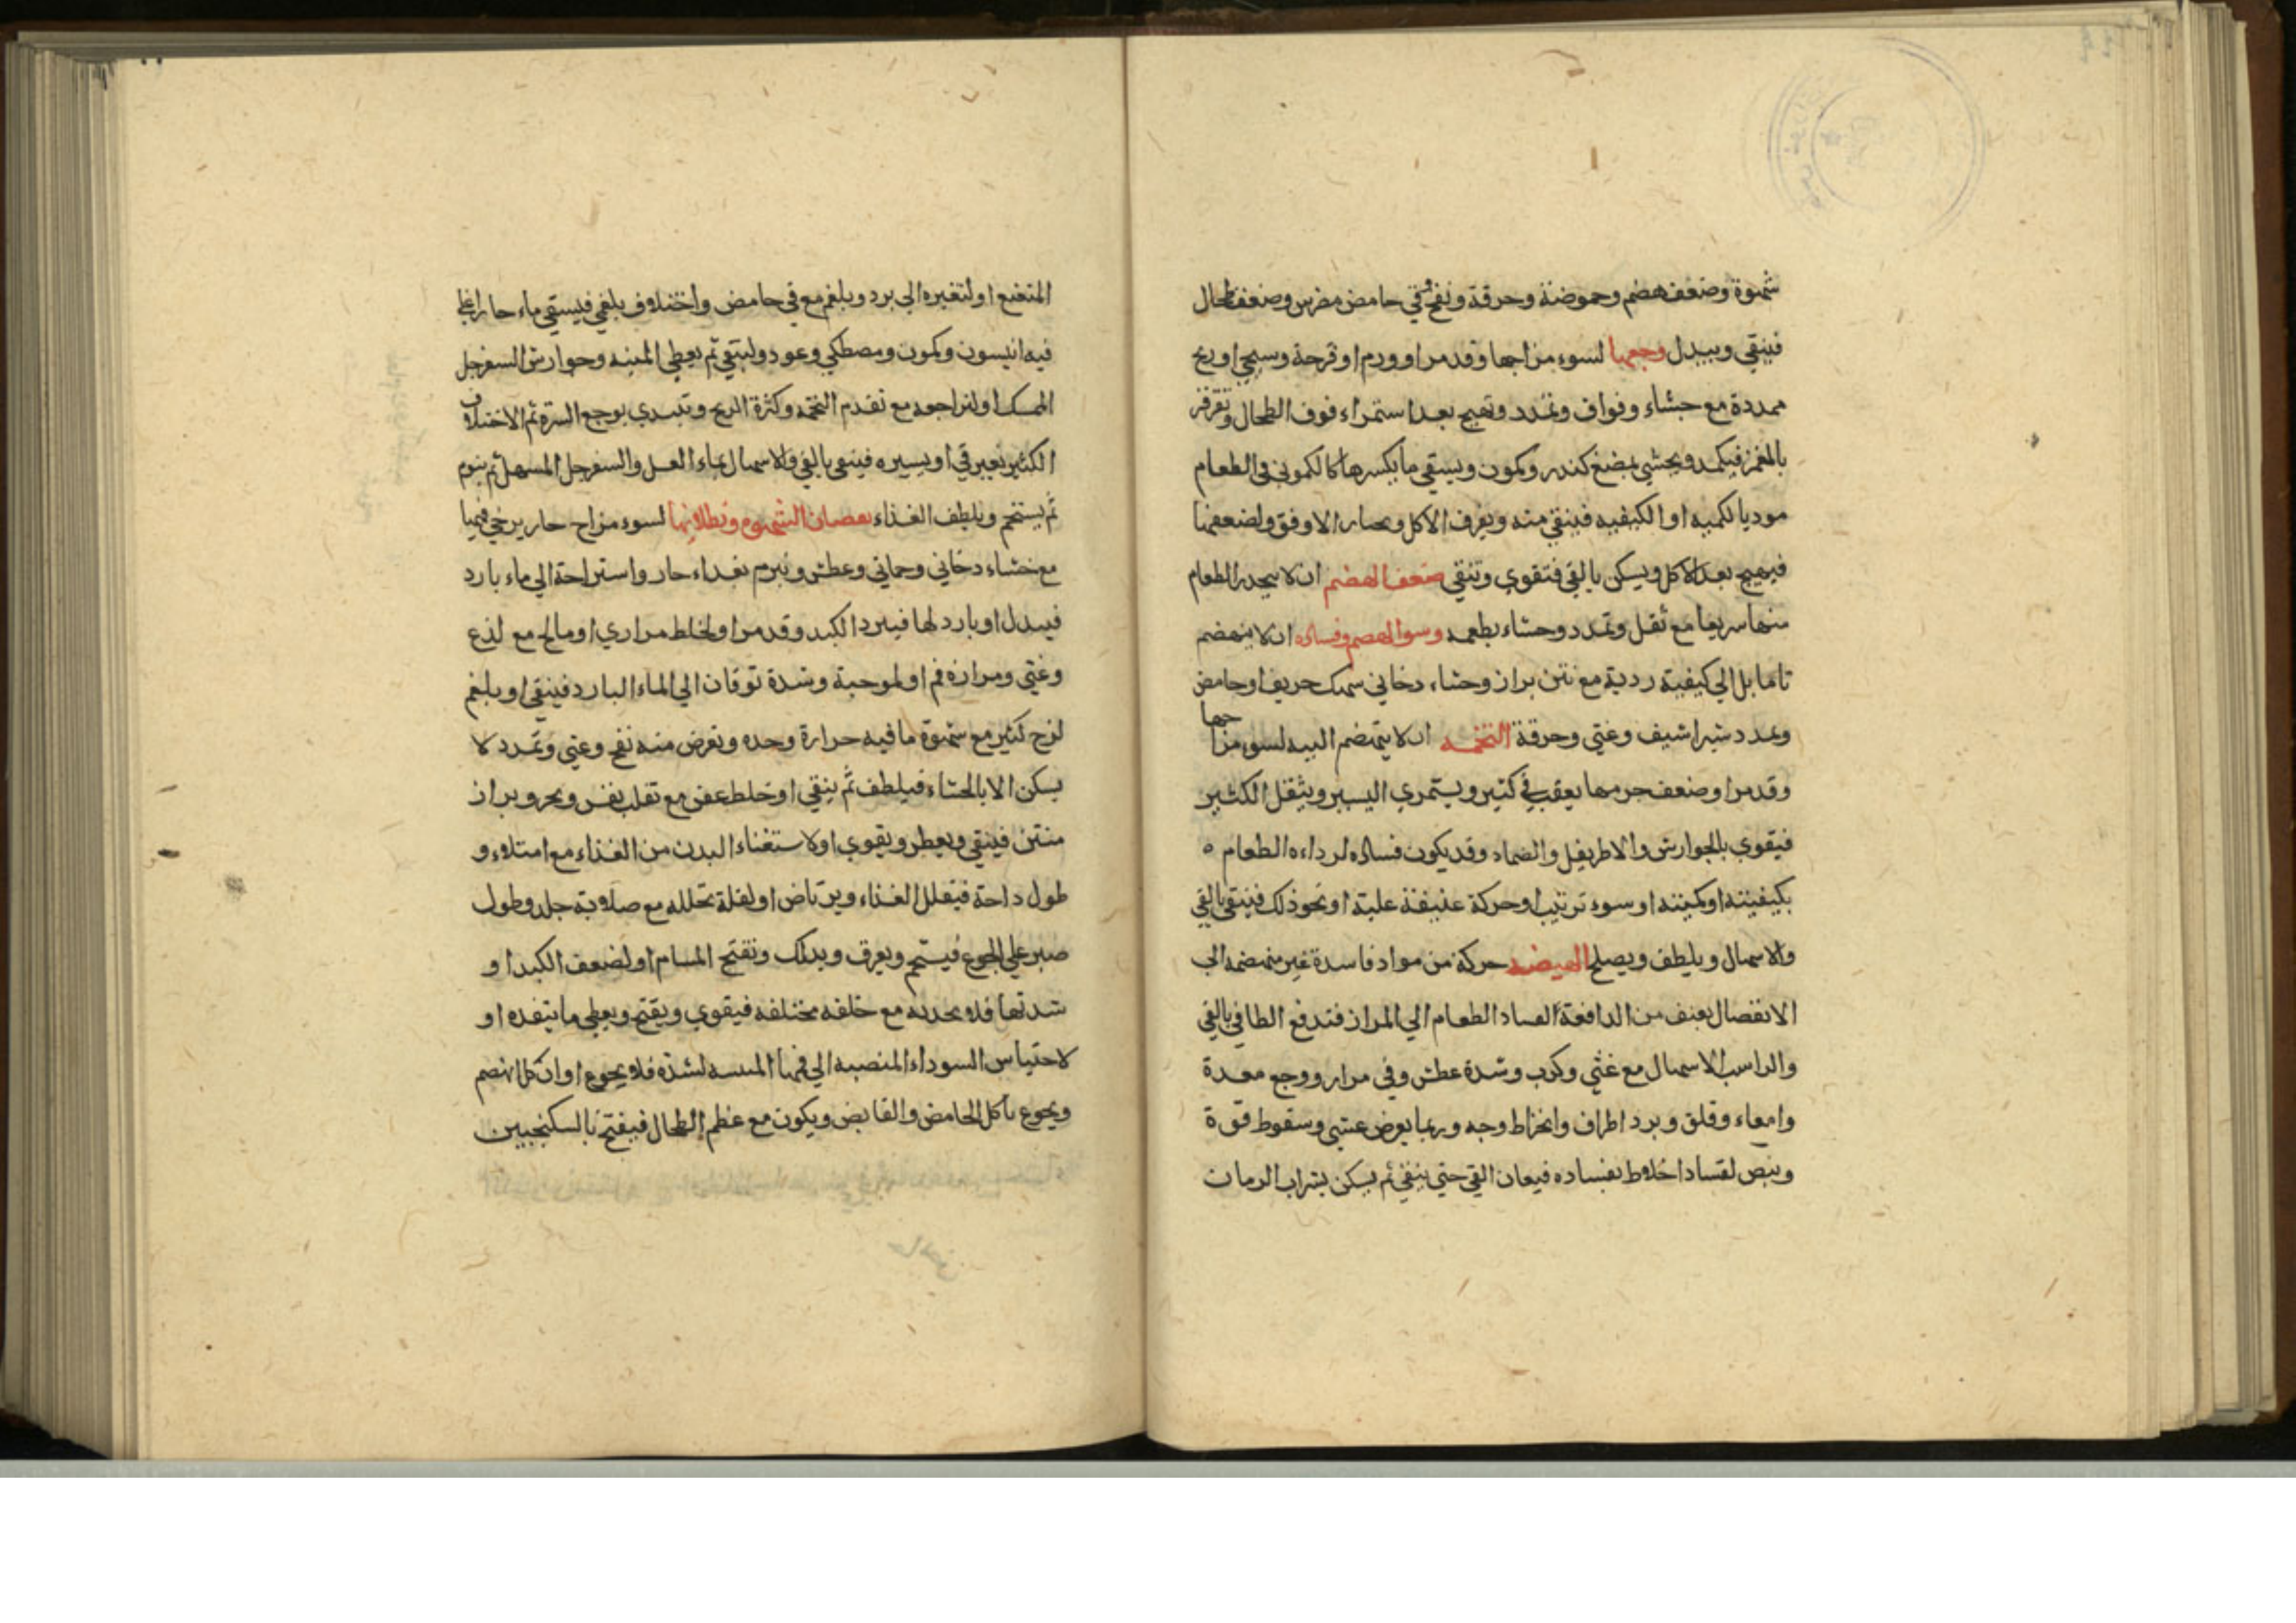 شهوة وضعف هضم وحموضة وحرقة ونفخ وقي حامض مضرس وضعف طحال
فينقي ويبدل وجعها لسوء مزاجها وقد مرا وورم او قرحة وسحج او ريح
ممددة مع جشاء وفواق وتمدد وتهيج بعد استمراء فوق الطحال وتقرقر
بالغمز فيكمد ويجشي بمضغ كندر وكمون ويسقي ما يكسرها كالكموني في الطعام
موديا لكميه او الكيفيه فينقي منه ويعرف الاكل ويختار الاوفق ولضعفها
فيهيج بعد الاكل ويسكن بالقي فتقوي وتنقي ضعف الهضم ان لا ينحدر الطعام
منها سريعا مع ثقل وتمدد وجشاء بطعمه وسوا الهضم وفساده ان لا ينهضم
تاما بل الي كيفية ردية مع نتن براز وجشاء دخاني سمك حريف او حامض
وتمدد شراشيف وغثي وحرقة التخمه ان لا ينهضم البته لسوء مزاجها
وقد مرا وضعف جرمها يعقب في كثير ويستمري اليسير ويثقل الكثير
فيقوي بالجوارش والاطريفل والضماد وقد يكون فساده لرداءة الطعام ه
بكيفيته او كميته او سوء ترتيب او حركة عنيفة عليه او نحو ذلك فينقي بالقي
والاسهال ويلطف ويصلح الهيضه حركة من مواد فاسدة غير منهضمه الي
الانفصال بعنف من الدافعة لفساد الطعام الي المرار فتدفع الطافي بالقي
والراسب بالاسهال مع غثي وكرب وشدة عطش وقي مرار ووجع معدة
وامعاء وقلق وبرد اطراف وانخراط وجه وربما يعرض غشي وسقوط قوة
ونبض لفساد اخلاط بفساده فيعان القي حتي ينقي ثم يسكن بشراب الرمان
المنعنع او لتغيره الي برد وبلغم مع قي حامض واختلاف بلغمي فيسقي ماء حارا غلي
فيه انيسون وكمون ومصطكي وعود ولينقي ثم يعطي الميبه وجوارش السفرجل
الممسك او لنراجعه مع تقدم التخمه وكثرة الريح وتبتدي بوجع السرة ثم الاختلاف
الكثير بغير قي او يسيره فينقي بالقي والاسهال بماء العسل والسفرجل المسهل ثم ينوم
ثم يستحم ويلطف الغذاء نقصان الشهوه وبطلانها لسوء مزاج حار يرخي فمها
مع جشاء دخاني وحماني وعطش وتبرم بغذاء حار واستراحة الي ماء بارد
فيبدل او بارد لها فيبرد الكبد وقد مرا ولخلط مراري او مالح مع لذع
وغثي ومرارة فم او لموحة وشدة توقان الي الماء البارد فينقي او بلغم
لزج كثير مع شهوة ما فيه حرارة وحده وتعرض منه نفخ وغثي وتمدد لا
يسكن الا بالجشاء فيلطف ثم ينقي او خلط عفن مع تقلب نفس وبخر وبراز
منتن فينقي ويعطر ويقوي او لاستغناء البدن من الغذاء مع امتلاء و
طول راحة فيقلل الغذاء ويرتاض او لقلة تحلله مع صلابة جلد وطول
صبر علي الجوع فيستحم ويعرق ويدلك وتفتح المسام او لضعف الكبد او
سدتها فلا يجذبه مع خلفه مختلفه فيقوي ويفتح ويعطي ما ينفذه او
لاحتباس السوداء المنصبه الي فمها المنبهه لسدة فلا يجوع او ان كل انهضم
ويجوع باكل الحامض والقابض ويكون مع عظم الطحال فيفتح بالسكنجبين